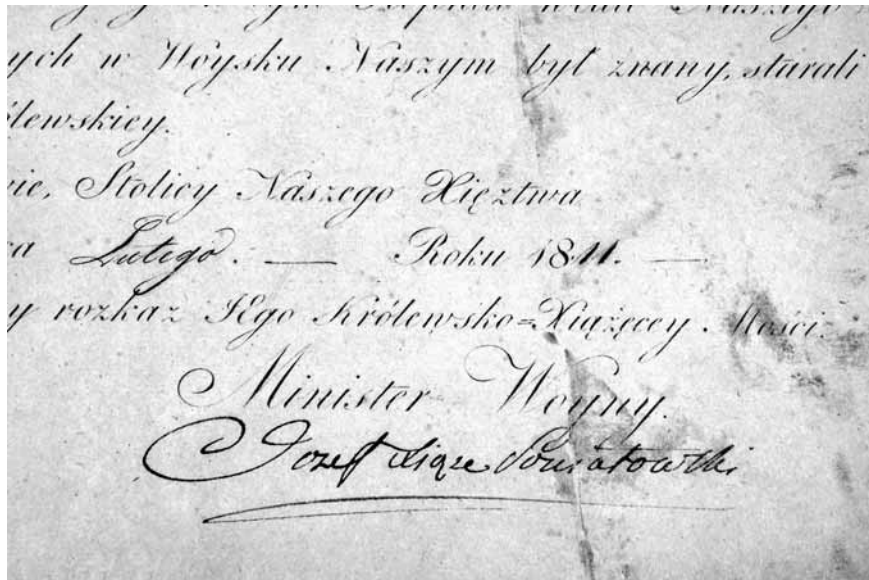 ych w Woysku Naszym był znany, starali
ólewskiey.
wie, Stolicy Naszego Xięztwa
ca Lutego. — Roku 1811. —
y rozkaz JEgo Królewsko=Xiążęcey Mości.
Minister Woyny.
Jozef Xiąże Poniatowski